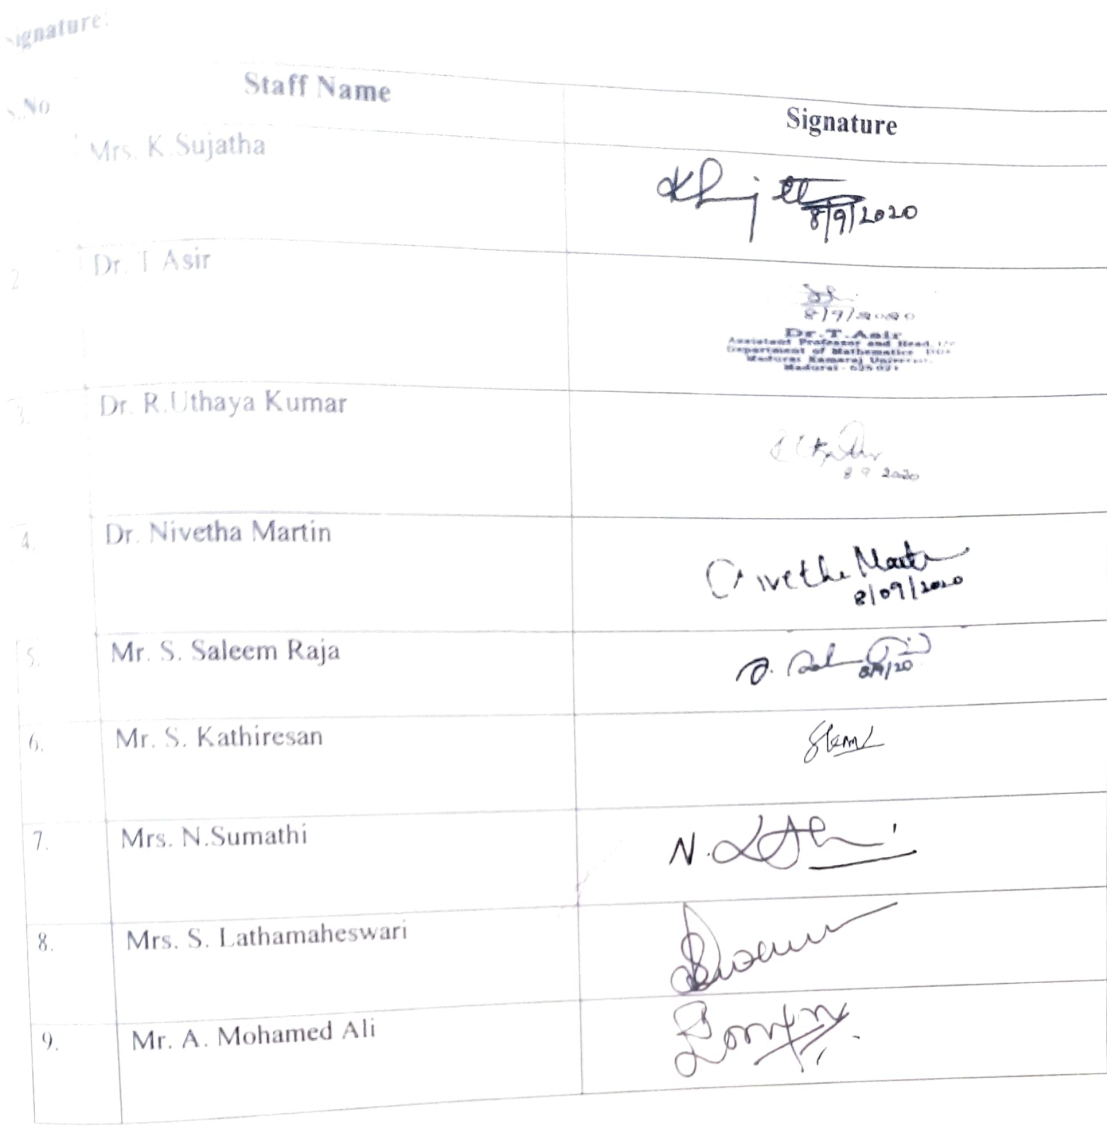 Signature:
S.No Staff Name Signature
Mrs. K.Sujatha
8/9/2020
2 Dr. T Asir
8/9/2020
Dr.T.Asir
Assistant Professor and Head, I/c
Department of Mathematics
Madurai Kamaraj University
Madurai - 625 021
3. Dr. R.Uthaya Kumar
8 9 2020
4. Dr. Nivetha Martin
Nivetha Martin
8/09/2020
5. Mr. S. Saleem Raja
8/9/20
6. Mr. S. Kathiresan
7. Mrs. N.Sumathi
N.
8. Mrs. S. Lathamaheswari
9. Mr. A. Mohamed Ali